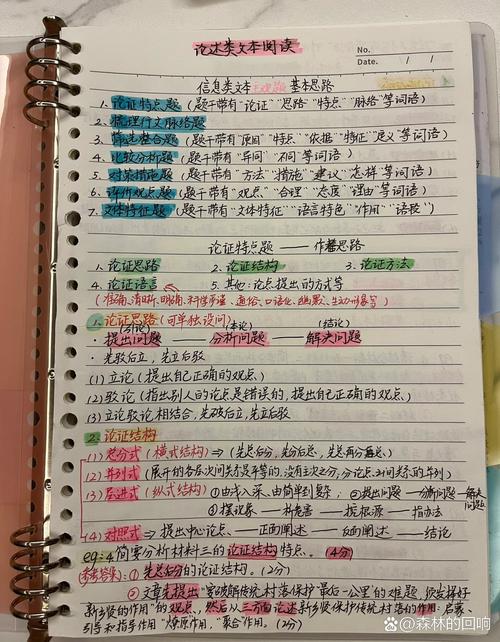 论述类文本阅读
No.
Date. / /
信息类文本主观题 基本思路
1. 论证特点题 (题干带有"论证""思路""特点""脉络"等词语)
2. 梳理行文脉络题
3. 筛选整合题 (题干带有"原因""特点""依据""特征""定义"等词语)
4. 比较分析题 (题干带有"异同""不同"等词语)
5. 对策措施题 (题干带有"方法""措施""建议""怎样"等词语)
6. 评价观点题 (题干带有"观点""合理""态度""理由"等词语)
7. 文体特征题 (题干带有"文体特征""语言特色""作用""语段")
论证特点题 —— 作答思路
1. 论证思路 2. 论证结构 3. 论证方法
4. 论证语言 5. 其他:论点提出的方式等
(准确、清晰、明确、科学严谨、通俗、口语化、幽默、生动形象等)
1. 论证思路 (可单独设问)
(引论) (本论) (结论)
· 提出问题 —— 分析问题 —— 解决问题
· 先驳后立,先立后驳
(1) 立论 (提出自己正确的观点)
(2) 驳论 (指出别人的论点是错误的,提出自己正确的观点)
(3) 立论驳论相结合,先破后立,先立后驳
2. 论证结构
(1) 总分式 (横式结构) ⇒ (先总后分,先分后总,先总再分再总)
(2) 并列式 (展开的各层次间关系是平等的,没有主次之分;分论点之间关系的并列)
(3) 层进式 (纵式结构) ①由浅入深、由简到繁; ②提出问题—分析问题—解决问题
③摆现象——析危害——挖根源——指办法
(4) 对照式 ⇒ 提出中心论点——正面阐述——反面阐述——结论
eg: 4 简要分析材料三的论证结构特点。(4分)
参考答案: ① 先总后分的论证结构。(2分)
② 文章先提出"要破解传统村落保护'最后一公里'的难题,须发挥好
新乡贤的作用"的观点,然后从三方面论述新乡贤保护传统村落的作用:启蒙、
引导和指导作用"燎原作用""聚合"作用。(2分)
森林的回响